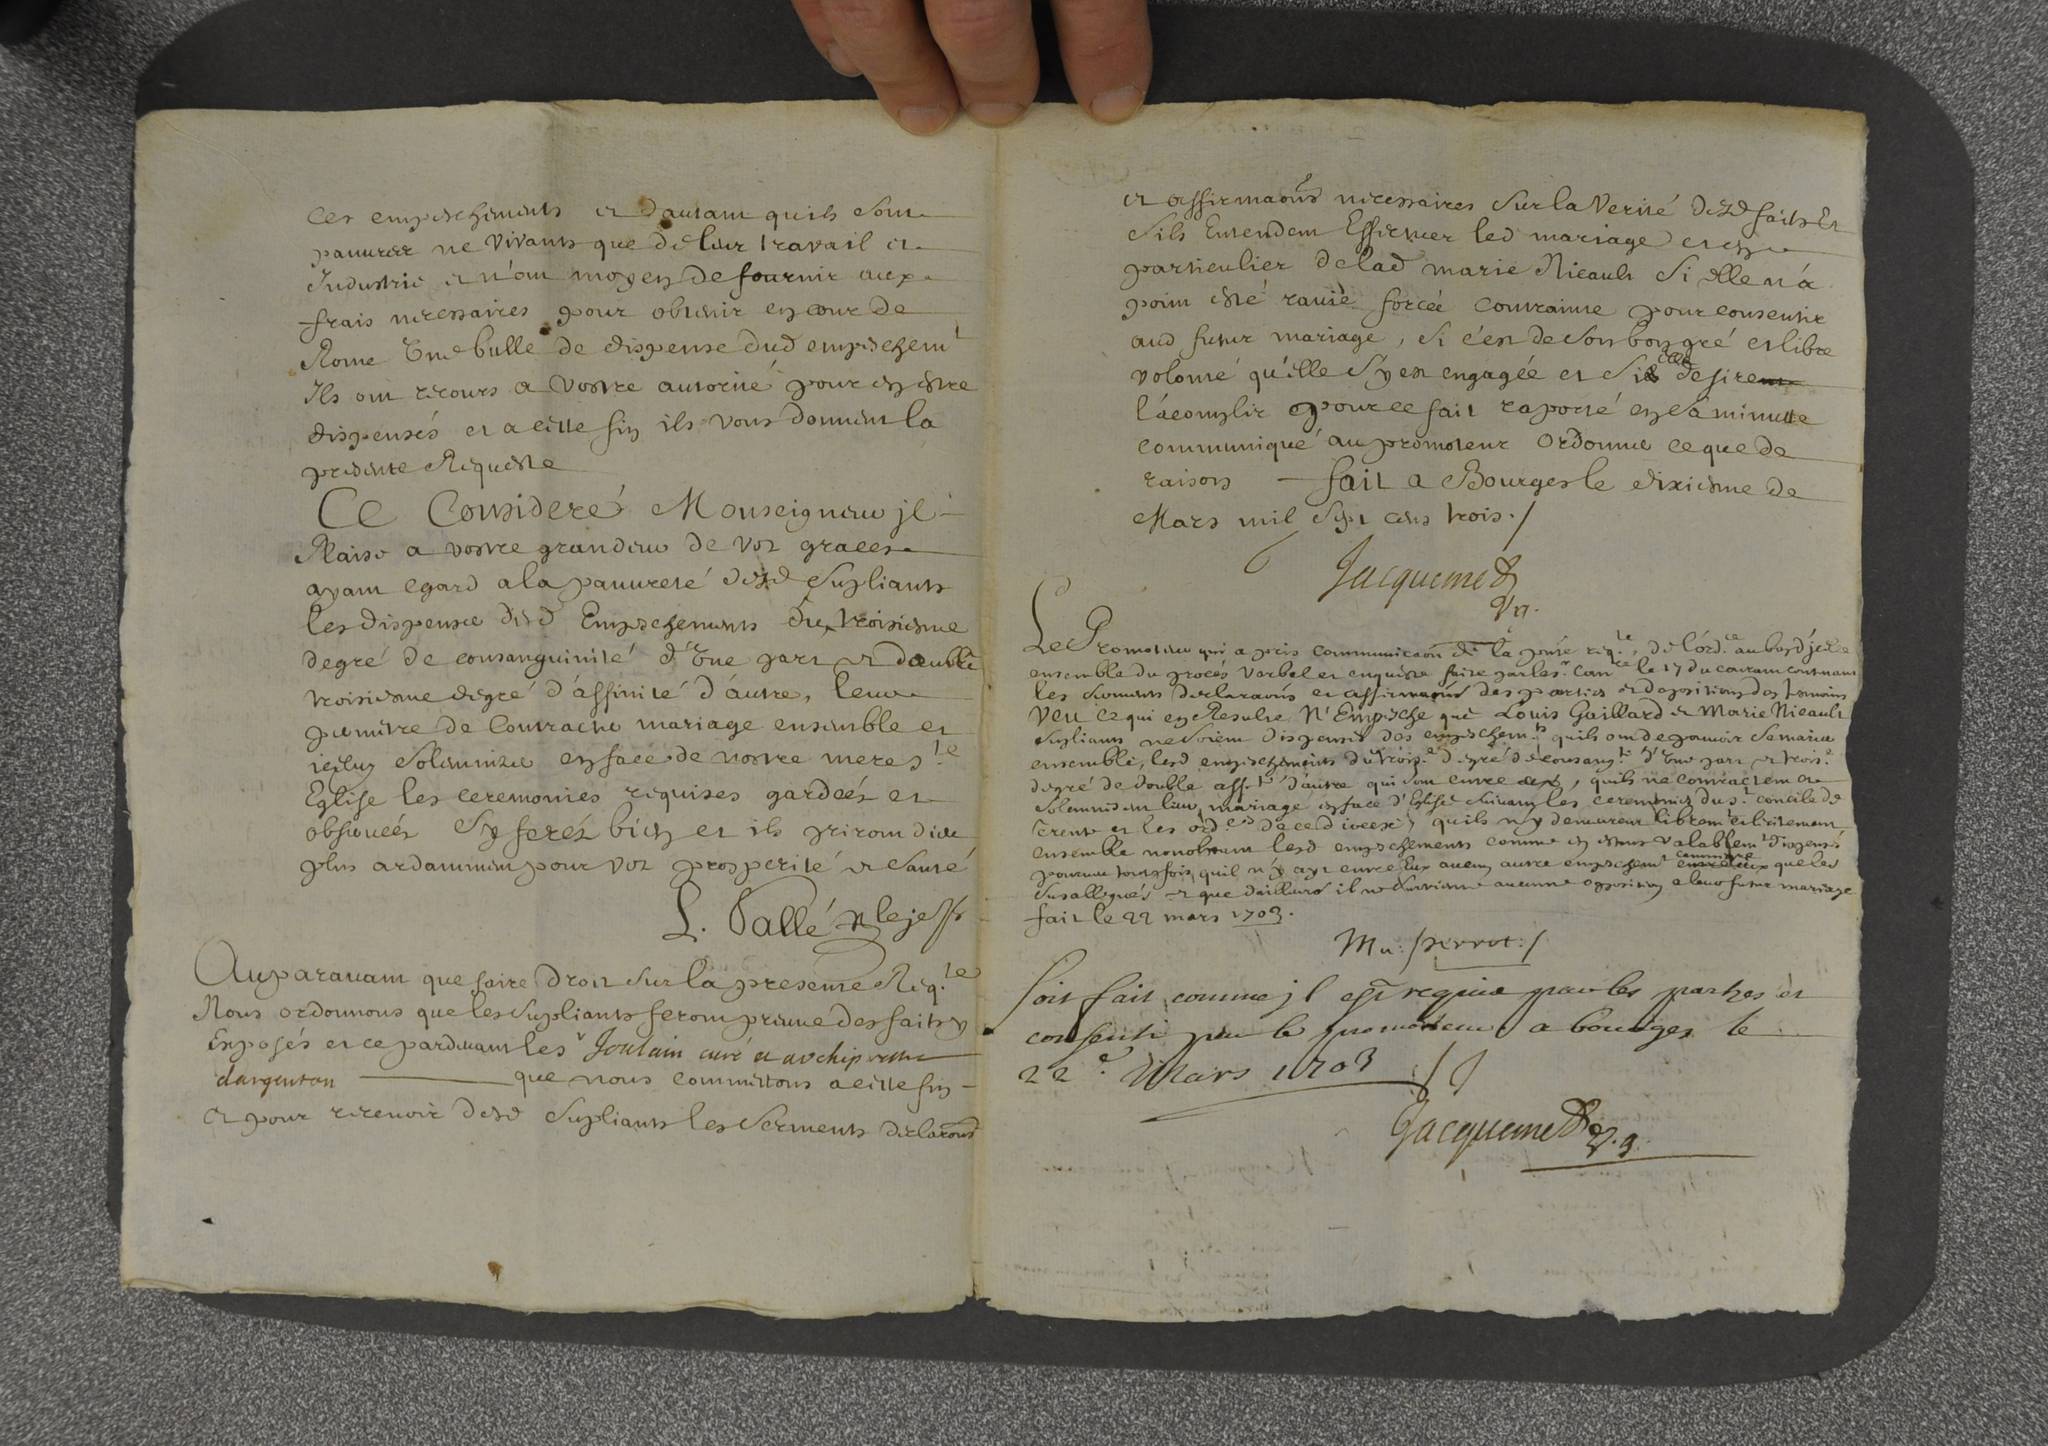 ces empeschements et dautant quils sont
pauvres ne vivants que de leur travail et
Industrie et n'ont moyen de fournir aux
frais necessaires pour obtenir en cour de
Rome Une bulle de dispense dud empeschemt
Ils ont recours a Vostre autorité pour en estre
dispensés et a cette fin ils vous donnent la
presente Requeste
Ce Consideré Monseigneur jl
Plaise a vostre grandeur de voz graces
ayant egard a la pauvreté desd Supliants
les dispenser desd Empeschements du troisiesme
degré de consanguinité d'Une part et double
troisiesme degré d'affinité d'autre, leur
permetre de Contracter mariage ensemble et
iceluy Solemnizer en face de nostre mere Ste
Eglise les ceremonies requises gardées et
observées Sy ferés bien et ils priront dieu
plus ardamment pour voz prosperité et Santé
L. Vallé le je
Auparavant que faire Droit Sur la presente Reqte
Nous ordonnons que les Supliants feront preuve des faits y
Exposés et ce pardevant le Sr Joulain curé et archiprestre
dargenton que nous commettons a cette fin
et pour recevoir desd Supliants les Serments declaraons
et affirmaons necessaires Sur la Verité desd faits Et
Sils Entendent Effectuer led mariage et en
particulier de lad marie Nicault Si elle n'a
point esté ravie forcée contrainte pour consentir
aud futur mariage, Si c'est de Son bon gré et libre
volonté qu'elle S'y est engagée et Si elle desire
l'acomplir pour ce fait raporté en Sa minutte
communiqué au promoteur Ordonner ce que de
raison fait a Bourges le dixiesme de
Mars mil Sept cens trois ./
Jacquemet
Vg.
Le Promoteur qui a pris communicaon de la pnte reqte, de l'ordce au bas d'jcelle
ensemble du procés Verbal et enqueste faite par led Sr Comre le 17 du courant contenant
les Serments declaraons et affirmaons des parties et depositions des temoins
Veu ce qui en Resulte N'Empesche que Louis Gaillard et Marie Nicault
Supliants ne Soient dispensés des empeschemts quils ont de pouvoir Se marier
ensemble, lesd empeschements du troise degré de consangté d'Une part et troise
degré de double affté d'autre qui Sont entre eux, quils ne contractent et
Solemnisent leur mariage en face d'Eglise Suivant les ceremonies du St concile de
Trente et les ordces de ce diocese, quils n'y demeurent librement et licitement
ensemble nonobstant lesd empeschements comme en estant valablemt dispensés
pourveu toutesfois quil n'y ayt entre Eux aucun autre empeschemt canonique que les
Susallegués et que dailleurs il ne Survienne aucunne opposition a leur futur mariage
fait le 22 mars 1703.
M : /perrot:/
Soit fait comme jl est requis par les parties et
consenti par le promoteur a bourges le
22e Mars 1703
Jacquemet
V.g.